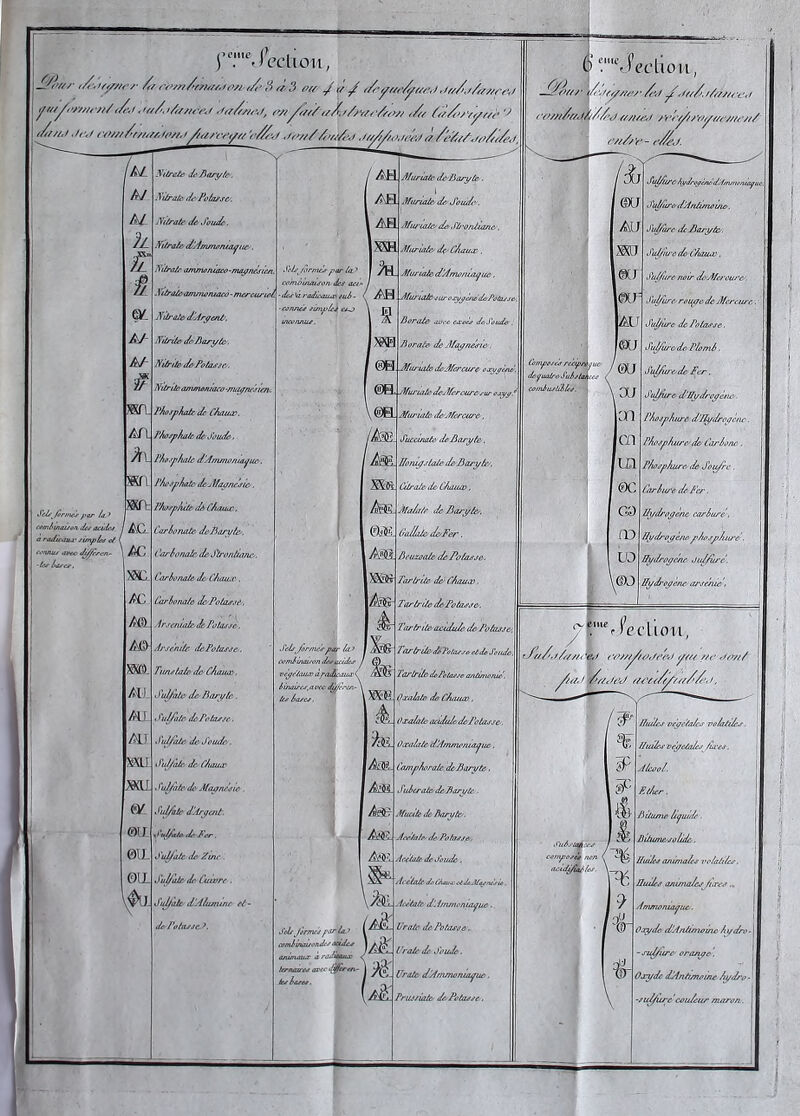 5.eme Section,
Pour désigner la combinaison de 3 à 3 ou 4 à 4 de quelques substances
qui forment des substances salines, on fait abstraction du Calorique
dans ces combinaisons parcequ'elles sont toutes supposées à l'état solides,
Sels formés par la
combinaison des acides
à radicaux simples et
connus avec différen-
-tes bases.
Nitrate de Baryte.
Nitrate de Potasse.
Nitrate de Soude.
Nitrate d'Ammoniaque.
Nitrate ammoniaco-magnésien.
Nitrate ammoniaco-mercuriel.
Nitrate d'Argent.
Nitrite de Baryte.
Nitrite de Potasse.
Nitrite ammoniaco-magnésien.
Phosphate de Chaux.
Phosphate de Soude.
Phosphate d'Ammoniaque.
Phosphate de Magnésie.
Phosphite de Chaux.
Carbonate de Baryte.
Carbonate de Strontiane.
Carbonate de Chaux.
Carbonate de Potasse.
Arseniate de Potasse.
Arsénite de Potasse.
Tunstate de Chaux.
Sulfate de Baryte.
Sulfate de Potasse.
Sulfate de Soude.
Sulfate de Chaux
Sulfate de Magnésie.
Sulfate d'Argent.
Sulfate de Fer.
Sulfate de Zinc.
Sulfate de Cuivre.
Sulfate d'Alumine et-
de Potasse.
Sels formés par la
combinaison des aci-
-des à radicaux sub-
-connés simples et
inconnus.
Muriate de Baryte.
Muriate de Soude.
Muriate de Strontiane.
Muriate de Chaux.
Muriate d'Amoniaque.
Muriate sur oxygéné de Potasse.
Borate avec excès de Soude.
Borate de Magnésie.
Muriate de Mercure oxygéné.
Muriate de Mercure sur oxyg.é
Muriate de Mercure.
Sels formés par la
combinaison des acides
végétaux à radicaux
binaires, avec différen-
tes bases.
Succinate de Baryte.
Honigstate de Baryte.
Citrate de Chaux.
Malate de Baryte.
Gallate de Fer.
Benzoate de Potasse.
Tartrite de Chaux.
Tartrite de Potasse.
Tartrite acidule de Potasse.
Tartrite de Potasse et de Soude.
Tartrite de Potasse antimonié.
Oxalate de Chaux.
Oxalate acidule de Potasse.
Oxalate d'Ammoniaque.
Camphorate de Baryte.
Suberate de Baryte.
Mucite de Baryte.
Acétate de Potasse.
Acétate de Soude.
Acétate de Chaux et de Magnésie.
Acétate d'Ammoniaque.
Sels formés par la
combinaison des acides
animaux à radicaux
ternaires avec différen-
tes bases.
Urate de Potasse.
Urate de Soude.
Urate d'Ammoniaque.
Prussiate de Potasse.
6.eme Section,
Pour désigner les 4 substances
combustibles unies réciproquement
entre-elles.
Composés réciproque
de quatre Substances
combustibles.
Sulfure hydrogéné d'Ammoniaque.
Sulfure d'Antimoine.
Sulfure de Baryte.
Sulfure de Chaux.
Sulfure noir de Mercure.
Sulfure rouge de Mercure.
Sulfure de Potasse.
Sulfure de Plomb.
Sulfure de Fer.
Sulfure d'Hydrogène.
Phosphure d'Hydrogène.
Phosphure de Carbone.
Phosphure de Soufre.
Carbure de Fer.
Hydrogène carburé.
Hydrogène phosphuré.
Hydrogène sulfuré.
Hydrogene arsénié.
7.eme Section,
Substances composées qui ne sont
pas bases acidifiables.
Substances
composées non
acidifiables.
Huiles végétales volatiles.
Huiles végétales fixes.
Alcool.
Ether.
Bitume liquide.
Bitume solide.
Huiles animales volatiles.
Huiles animales fixes.
Ammoniaque.
Oxyde d'Antimoine hydro-
-sulfuré orangé.
Oxyde d'Antimoine hydro-
-sulfuré couleur maron.